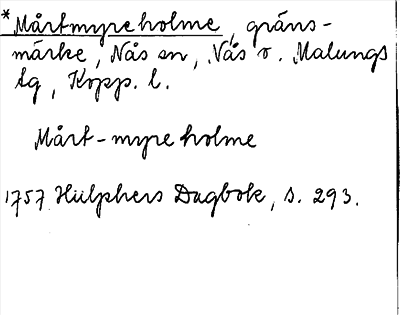 *Mårtmyreholme, gräns-
märke, Nås sn, Nås o. Malungs
tg, Kopp. l.
Mårt-myre holme
1757 Hülphers Dagbok, s. 293.